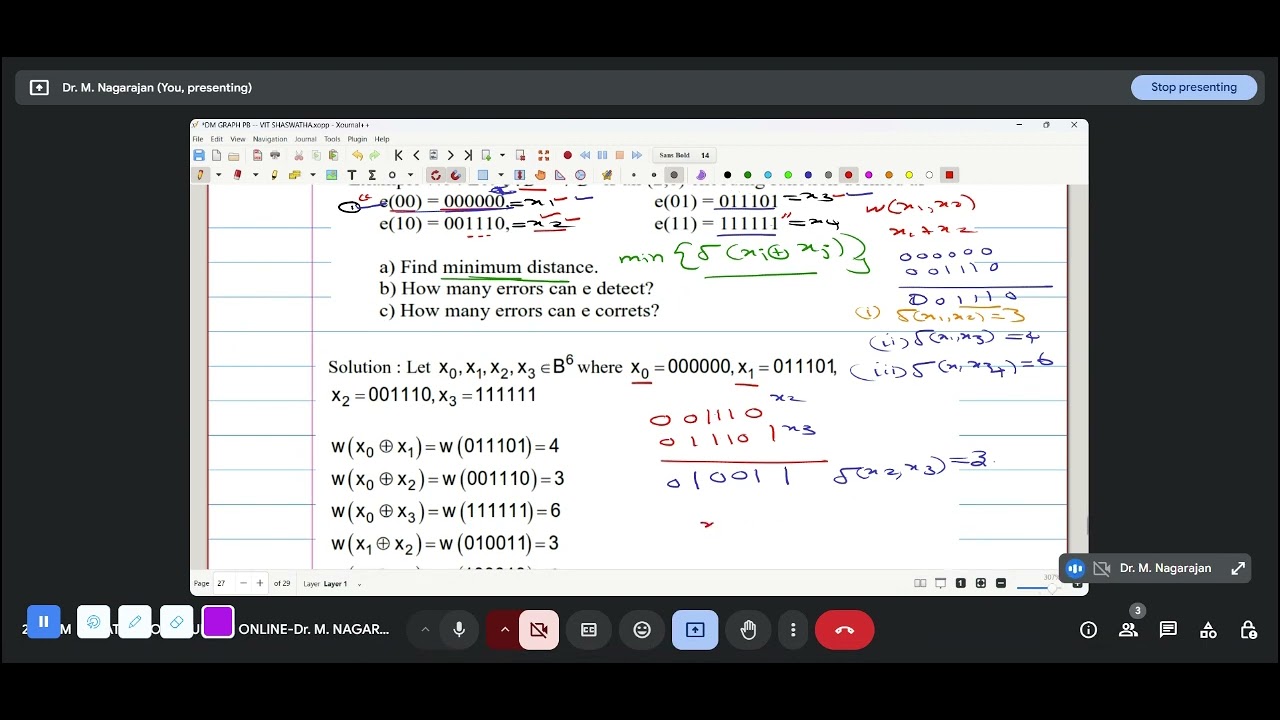 Dr. M. Nagarajan (You, presenting)
Stop presenting
*DM GRAPH PB -- VIT SHASWATHA.xopp - Xournal++
File Edit View Navigation Journal Tools Plugin Help
Sans Bold 14
e(00) = 000000, = x1
e(01) = 011101 = x3
w(x1, x2)
e(10) = 001110, = x2
e(11) = 111111 = x4
x1 + x2
min { δ (xi ⊕ xj) }
000000
001110
a) Find minimum distance.
001110
b) How many errors can e detect?
(i) δ(x1, x2) = 3
c) How many errors can e correts?
(ii) δ(x1, x3) = 4
(iii) δ(x1, x4) = 6
Solution : Let x0, x1, x2, x3 ∈ B⁶ where x0 = 000000, x1 = 011101,
x2 = 001110, x3 = 111111
001110 x2
011101 x3
w(x0 ⊕ x1) = w(011101) = 4
010011 δ(x2, x3) = 3
w(x0 ⊕ x2) = w(001110) = 3
w(x0 ⊕ x3) = w(111111) = 6
w(x1 ⊕ x2) = w(010011) = 3
Page 27 of 29 Layer Layer 1
307%
Dr. M. Nagarajan
ONLINE-Dr. M. NAGAR...
3